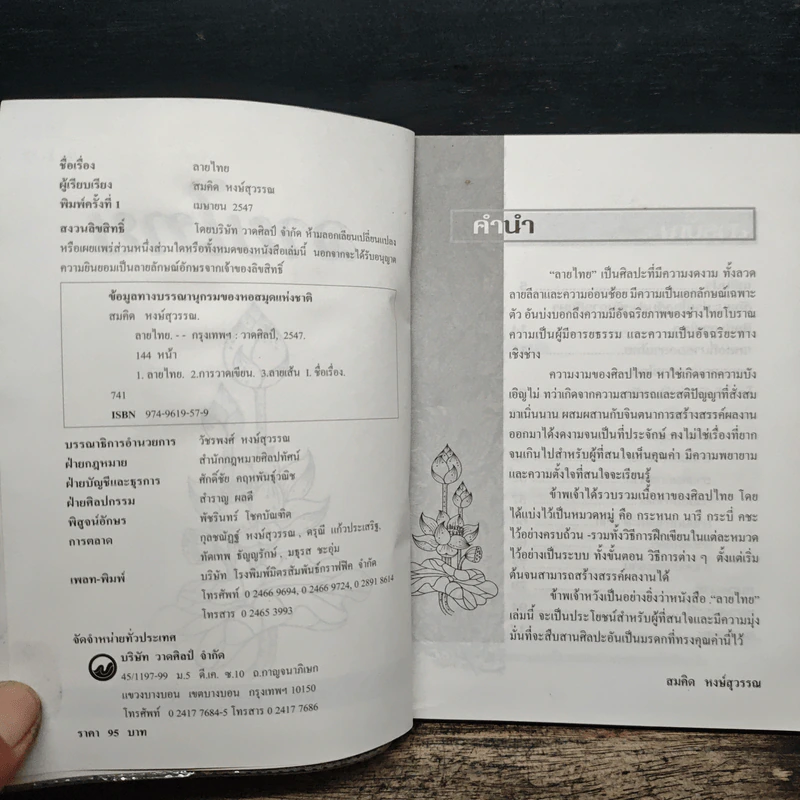 ชื่อเรื่อง ลายไทย
ผู้เรียบเรียง สมคิด หงษ์สุวรรณ
พิมพ์ครั้งที่ 1 เมษายน 2547
สงวนลิขสิทธิ์ โดยบริษัท วาดศิลป์ จำกัด ห้ามลอกเลียนเปลี่ยนแปลง
หรือเผยแพร่ส่วนหนึ่งส่วนใดหรือทั้งหมดของหนังสือเล่มนี้ นอกจากจะได้รับอนุญาต
ความยินยอมเป็นลายลักษณ์อักษรจากเจ้าของลิขสิทธิ์
ข้อมูลทางบรรณานุกรมของหอสมุดแห่งชาติ
สมคิด หงษ์สุวรรณ.
ลายไทย. -- กรุงเทพฯ : วาดศิลป์, 2547.
144 หน้า
1. ลายไทย. 2.การวาดเขียน. 3.ลายเส้น I. ชื่อเรื่อง.
741
ISBN 974-9619-57-9
บรรณาธิการอำนวยการ วัชรพงศ์ หงษ์สุวรรณ
ฝ่ายกฎหมาย สำนักกฎหมายศิลปทัศน์
ฝ่ายบัญชีและธุรการ ศักดิ์ชัย คฤหพันธุ์วณิช
ฝ่ายศิลปกรรม สำราญ ผลดี
พิสูจน์อักษร พัชรินทร์ โชคบัณฑิต
การตลาด กุลชณัฏฐ์ หงษ์สุวรรณ, ดรุณี แก้วประเสริฐ,
ทัดเทพ ธัญญรักษ์, มธุรส ชะอุ่ม
เพลท-พิมพ์ บริษัท โรงพิมพ์มิตรสัมพันธ์กราฟฟิค จำกัด
โทรศัพท์ 0 2466 9694, 0 2466 9724, 0 2891 8614
โทรสาร 0 2465 3993
จัดจำหน่ายทั่วประเทศ
บริษัท วาดศิลป์ จำกัด
45/1197-99 ม.5 ดี.เค. ซ.10 ถ.กาญจนาภิเษก
แขวงบางบอน เขตบางบอน กรุงเทพฯ 10150
โทรศัพท์ 0 2417 7684-5 โทรสาร 0 2417 7686
ราคา 95 บาท
คำนำ
"ลายไทย" เป็นศิลปะที่มีความงดงาม ทั้งลวด
ลายลีลาและความอ่อนช้อย มีความเป็นเอกลักษณ์เฉพาะ
ตัว อันบ่งบอกถึงความมีอัจฉริยภาพของช่างไทยโบราณ
ความเป็นผู้มีอารยธรรม และความเป็นอัจฉริยะทาง
เชิงช่าง
ความงามของศิลปไทย หาใช่เกิดจากความบัง
เอิญไม่ ทว่าเกิดจากความสามารถและสติปัญญาที่สั่งสม
มาเนิ่นนาน ผสมผสานกับจินตนาการสร้างสรรค์ผลงาน
ออกมาได้งดงามจนเป็นที่ประจักษ์ คงไม่ใช่เรื่องที่ยาก
จนเกินไปสำหรับผู้ที่สนใจเห็นคุณค่า มีความพยายาม
และความตั้งใจที่สนใจจะเรียนรู้
ข้าพเจ้าได้รวบรวมเนื้อหาของศิลปไทย โดย
ได้แบ่งไว้เป็นหมวดหมู่ คือ กระหนก นารี กระบี่ คชะ
ไว้อย่างครบถ้วน -รวมทั้งวิธีการฝึกเขียนในแต่ละหมวด
ไว้อย่างเป็นระบบ ทั้งขั้นตอน วิธีการต่าง ๆ ตั้งแต่เริ่ม
ต้นจนสามารถสร้างสรรค์ผลงานได้
ข้าพเจ้าหวังเป็นอย่างยิ่งว่าหนังสือ "ลายไทย"
เล่มนี้ จะเป็นประโยชน์สำหรับผู้ที่สนใจและมีความมุ่ง
มั่นที่จะสืบสานศิลปะอันเป็นมรดกที่ทรงคุณค่านี้ไว้
สมคิด หงษ์สุวรรณ